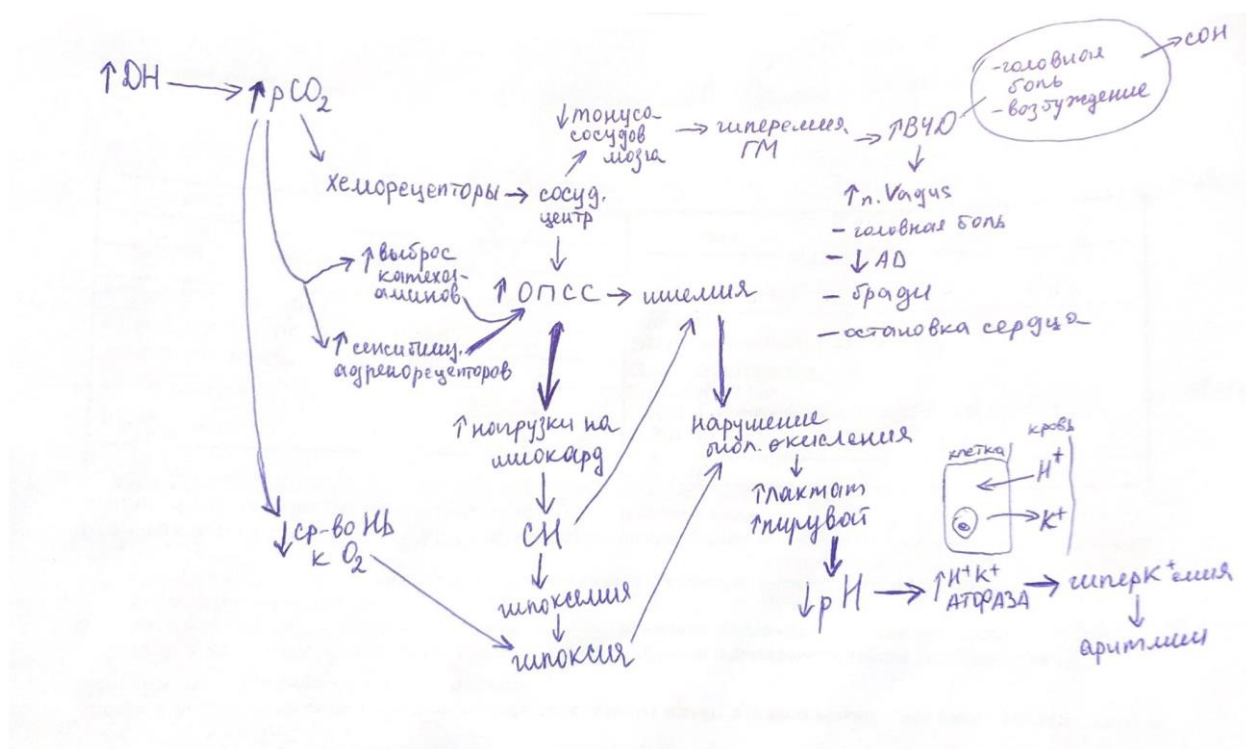 ↑ DH → ↑ pCO₂
↓ тонуса
сосудов
мозга
→ гиперемия
ГМ
→ ↑ ВЧД
- головная
боль
- возбуждение
→ сон
хеморецепторы → сосуд.
центр
↑ n. Vagus
- головная боль
- ↓ АД
- бради
- остановка сердца
↑ выброс
катехол-
аминов
↑ ОПСС → ишемия
↑ сенситивиз.
адренорецепторов
↑ нагрузки на
миокард
нарушение
биол. окисления
↑ лактат
↑ пируват
клетка
кровь
H⁺
K⁺
↓ ср-во Hb
к O₂
СН
гипоксемия
гипоксия
↓ pH → ↑ H⁺K⁺
АТФРАЗА
→ гиперK⁺емия
аритмии